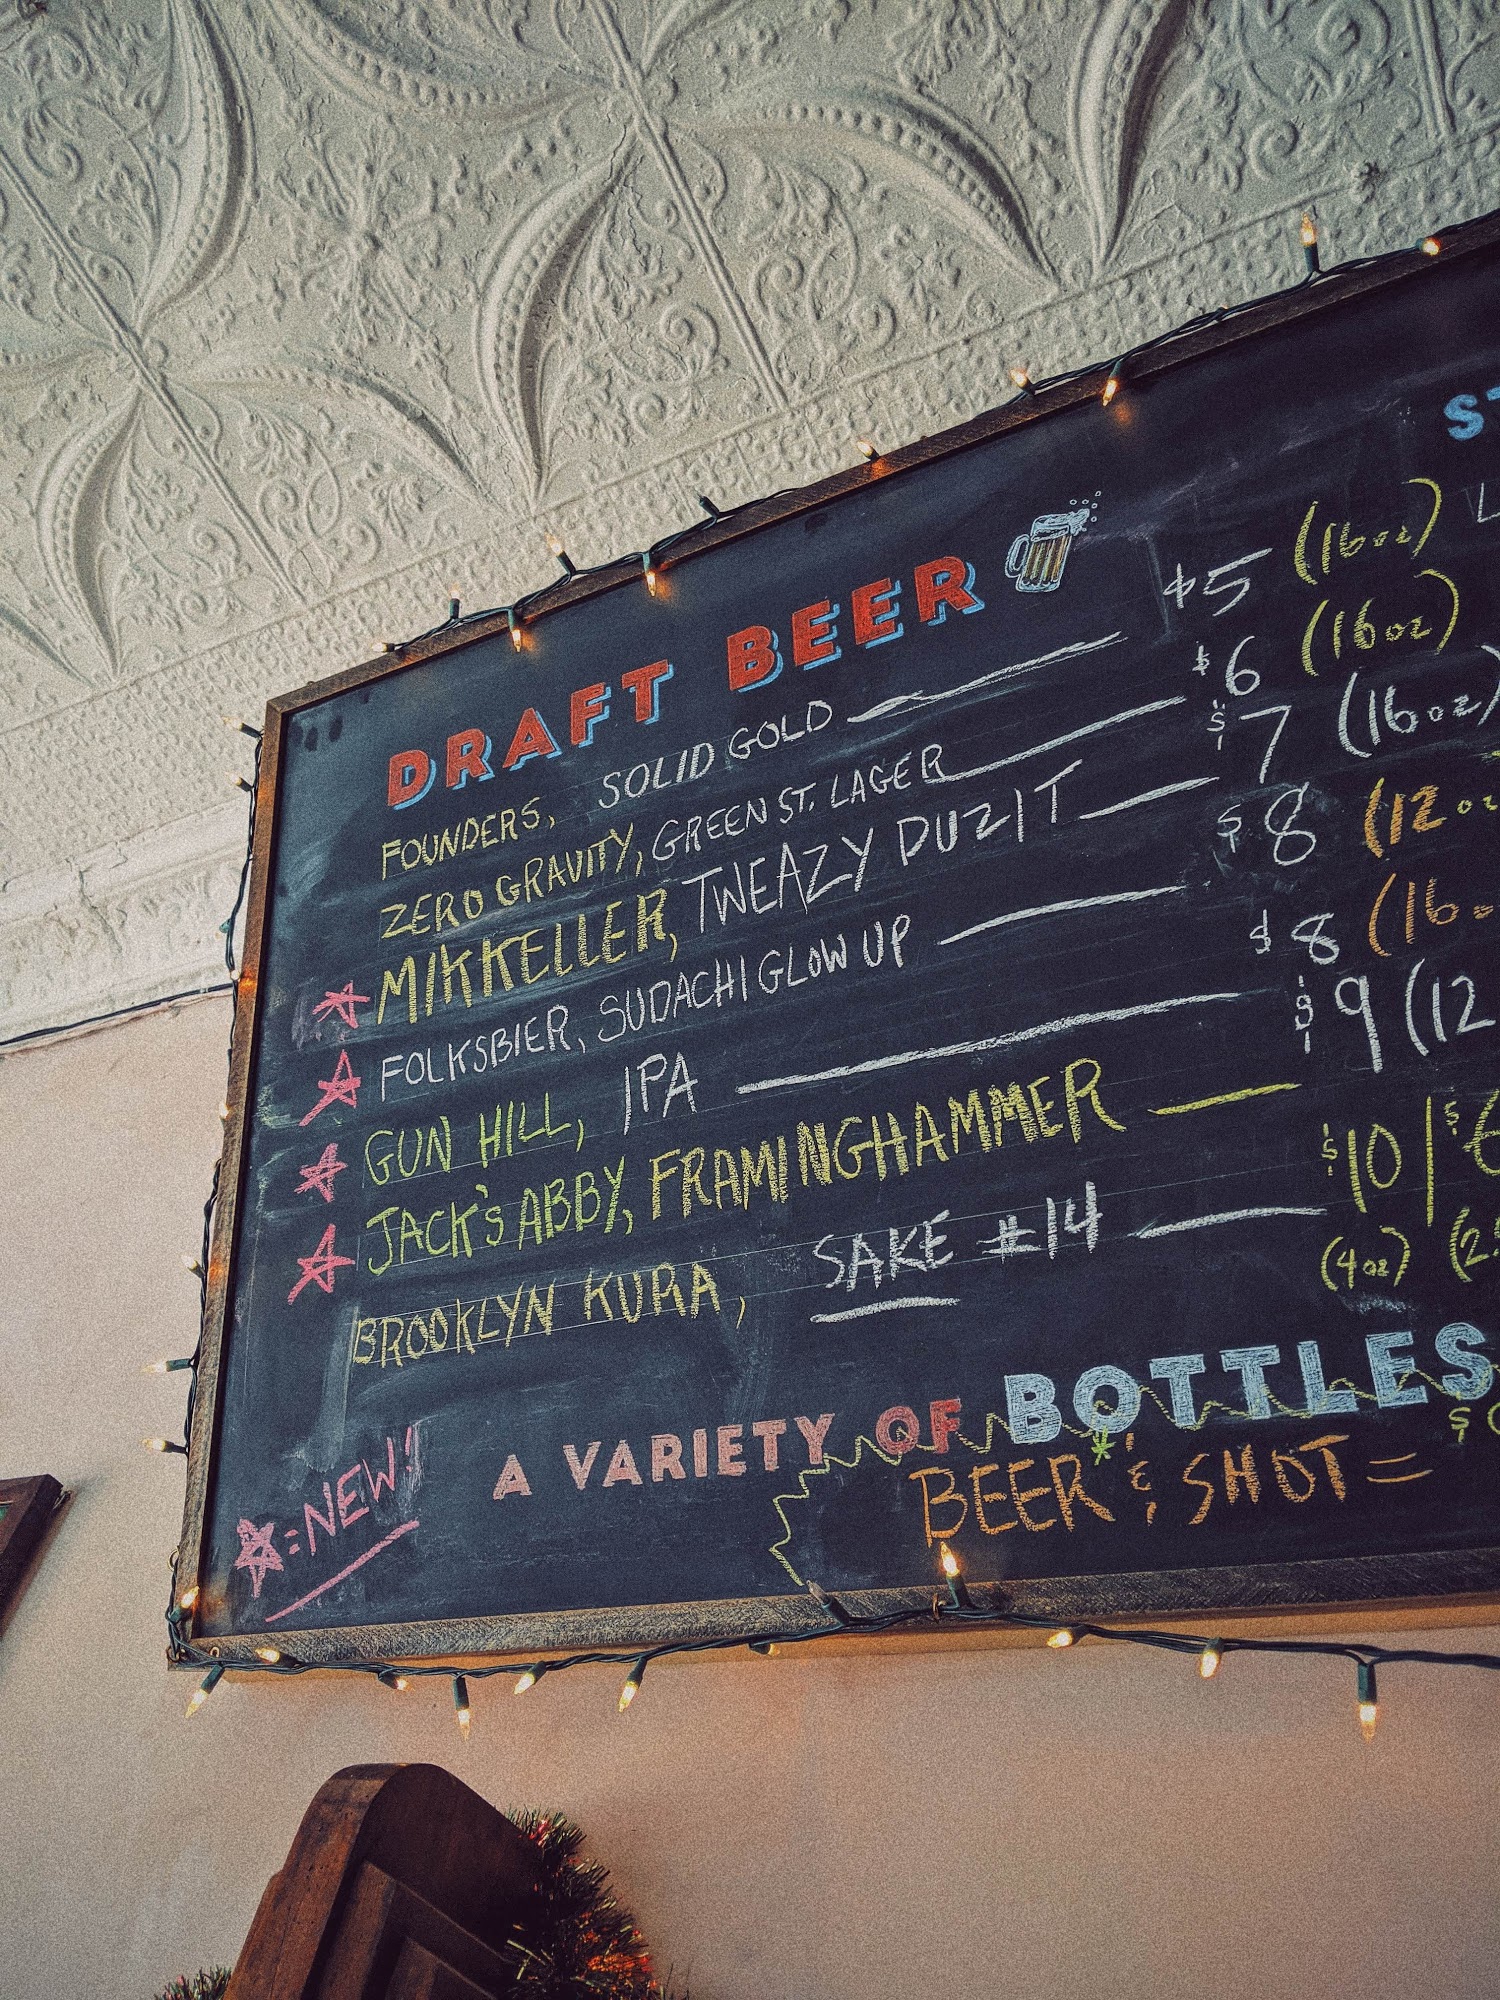 DRAFT BEER
FOUNDERS, SOLID GOLD $5 (16oz)
ZERO GRAVITY, GREEN ST. LAGER $6 (16oz)
MIKKELLER, TWEAZY DUZIT $7 (16oz)
FOLKSBIER, SUDACHI GLOW UP $8 (12oz
GUN HILL, IPA $8 (16o
JACK'S ABBY, FRAMINGHAMMER $9 (12
BROOKLYN KURA, SAKE #14 $10 | $
(4oz) (2
A VARIETY OF BOTTLES
BEER & SHOT =
= NEW!